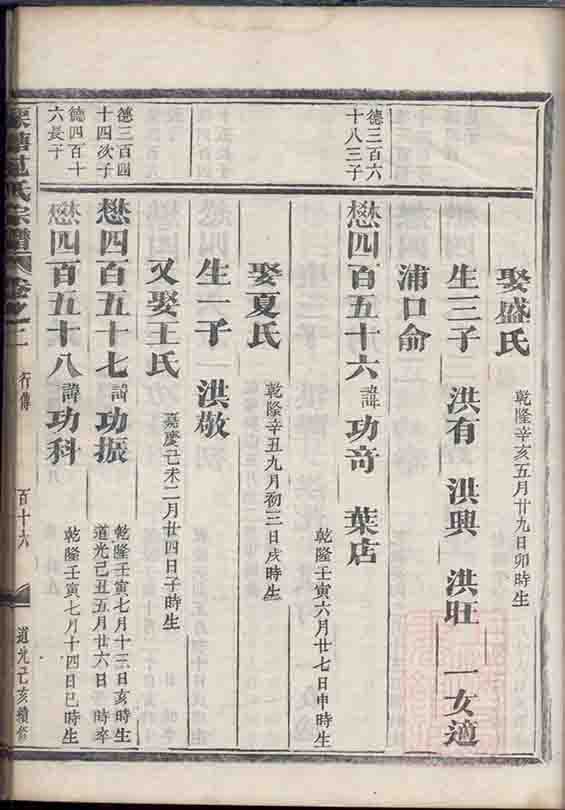 娶盛氏 乾隆辛亥五月廿九日卯時生
生三子 洪有 洪興 洪旺 一女適
浦口俞
德三百六
十八三子
懋四百五十六 諱 功奇 葉店
乾隆壬寅六月廿七日申時生
娶夏氏 乾隆辛丑九月初三日戌時生
生一子 洪敬
又娶王氏 嘉慶己未二月廿四日子時生
德三百四
十四次子
懋四百五十七 諱 功振
乾隆壬寅七月十三日亥時生
道光己丑五月廿六日 時卒
德四百十
六長子
懋四百五十八 諱 功科
乾隆壬寅七月十四日巳時生
范氏宗譜 卷之 行傳 百十六 道光己亥續修